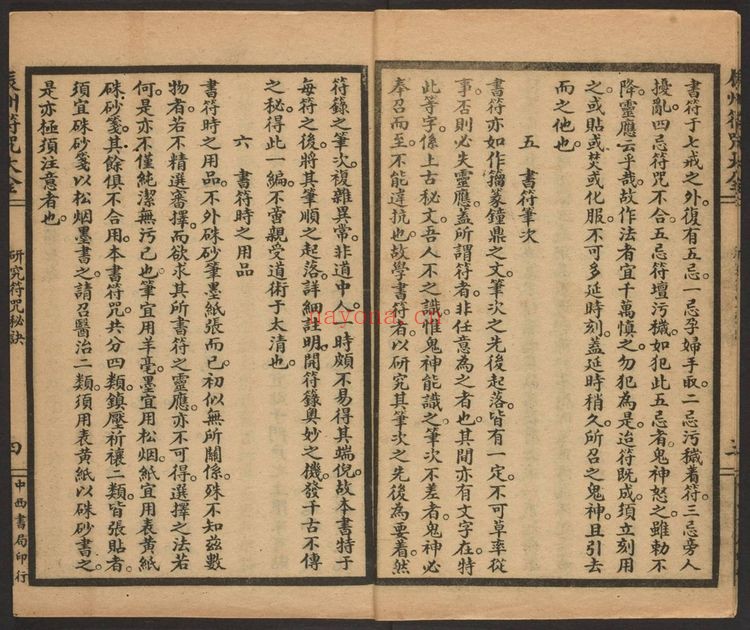 書符于七戒之外。復有五忌。一忌孕婦手取。二忌污穢着符。三忌旁人
擾亂。四忌符咒不合。五忌符壇污穢。如犯此五忌者。鬼神怒之。雖勅不
降。靈應云乎哉。故作法者宜千萬慎之。勿犯為是。迨符既成。須立刻用
之。或貼或焚或化服。不可多延時刻。蓋延時稍久。所召之鬼神且引去
而之他也。
五 書符筆次
書符亦如作籀篆鐘鼎之文。筆次之先後起落。皆有一定。不可草率從
事。否則必失靈應。蓋所謂符者。非任意為之者也。其間亦有文字在。特
此等字係上古秘文。吾人不之識。惟鬼神能識之。筆次不差者。鬼神必
奉召而至。不能違抗也。故學書符者。以研究其筆次之先後為要着。然
符籙之筆次。複雜異常。非道中人。一時頗不易得其端倪。故本書特于
每符之後。將其筆順之起落。詳細註明。開符籙奥妙之機。發千古不傳
之秘。得此一編。不啻親受道術于太清也。
六 書符時之用品
書符時之用品。不外硃砂筆墨紙張而已。初似無所關係。殊不知茲數
物者。若不精選審擇。而欲求其所書符之靈應。亦不可得。選擇之法若
何。是亦不僅純潔無污已也。筆宜用羊毫。墨宜用松烟。紙宜用表黃紙
硃砂箋。其餘俱不合用。本書符咒共分四類。鎮壓祈禳二類。皆張貼者。
須宜硃砂箋。以松烟墨書之。請召醫治二類。須用表黃紙。以硃砂書之。
是亦極須注意者也。
辰州符咒大全
研究符咒秘訣
四
中西書局印行
nayona.cn